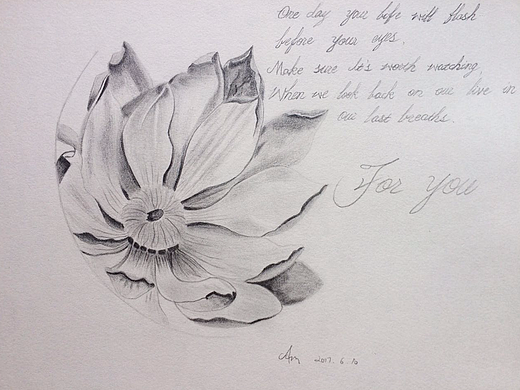 One day your life will flash
before your eyes.
Make sure it's worth watching.
When we look back on our live in
our last breaths.
For you
2017. 6. 10